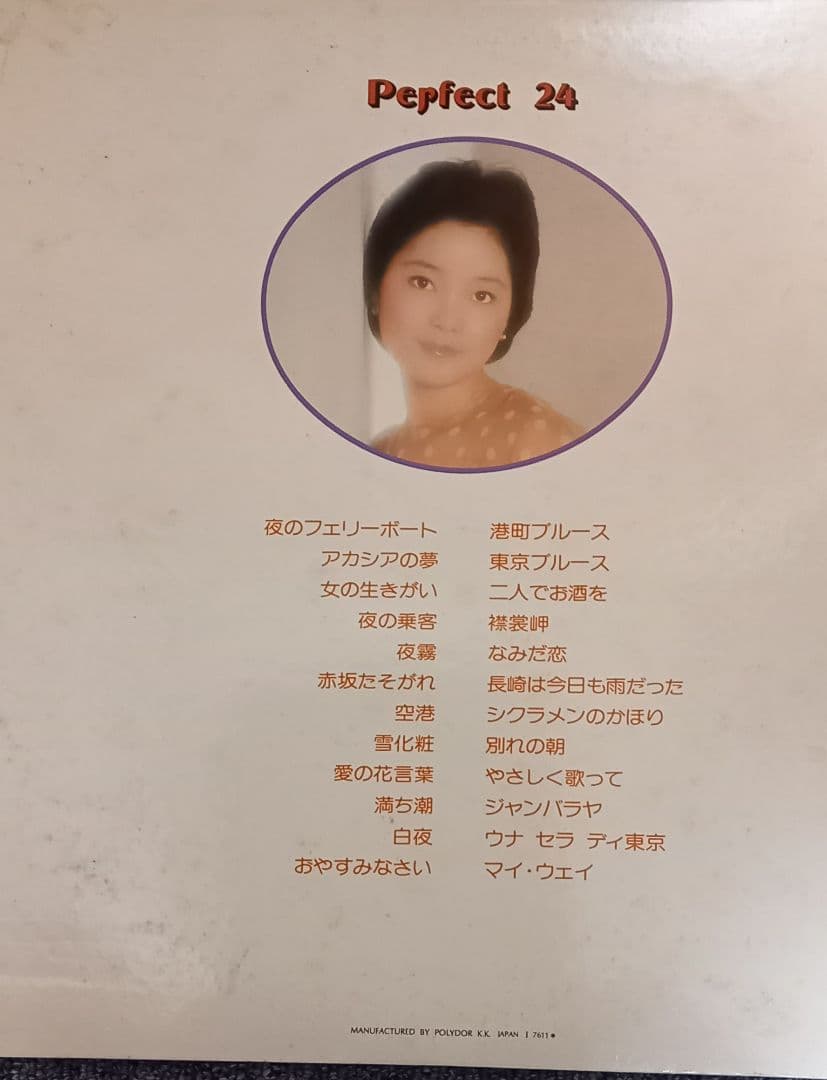 Perfect 24
夜のフェリーボート
アカシアの夢
女の生きがい
夜の乗客
夜霧
赤坂たそがれ
空港
雪化粧
愛の花言葉
満ち潮
白夜
おやすみなさい
港町ブルース
東京ブルース
二人でお酒を
襟裳岬
なみだ恋
長崎は今日も雨だった
シクラメンのかほり
別れの朝
やさしく歌って
ジャンバラヤ
ウナ セラ ディ東京
マイ・ウェイ
MANUFACTURED BY POLYDOR K.K. JAPAN I 7611★